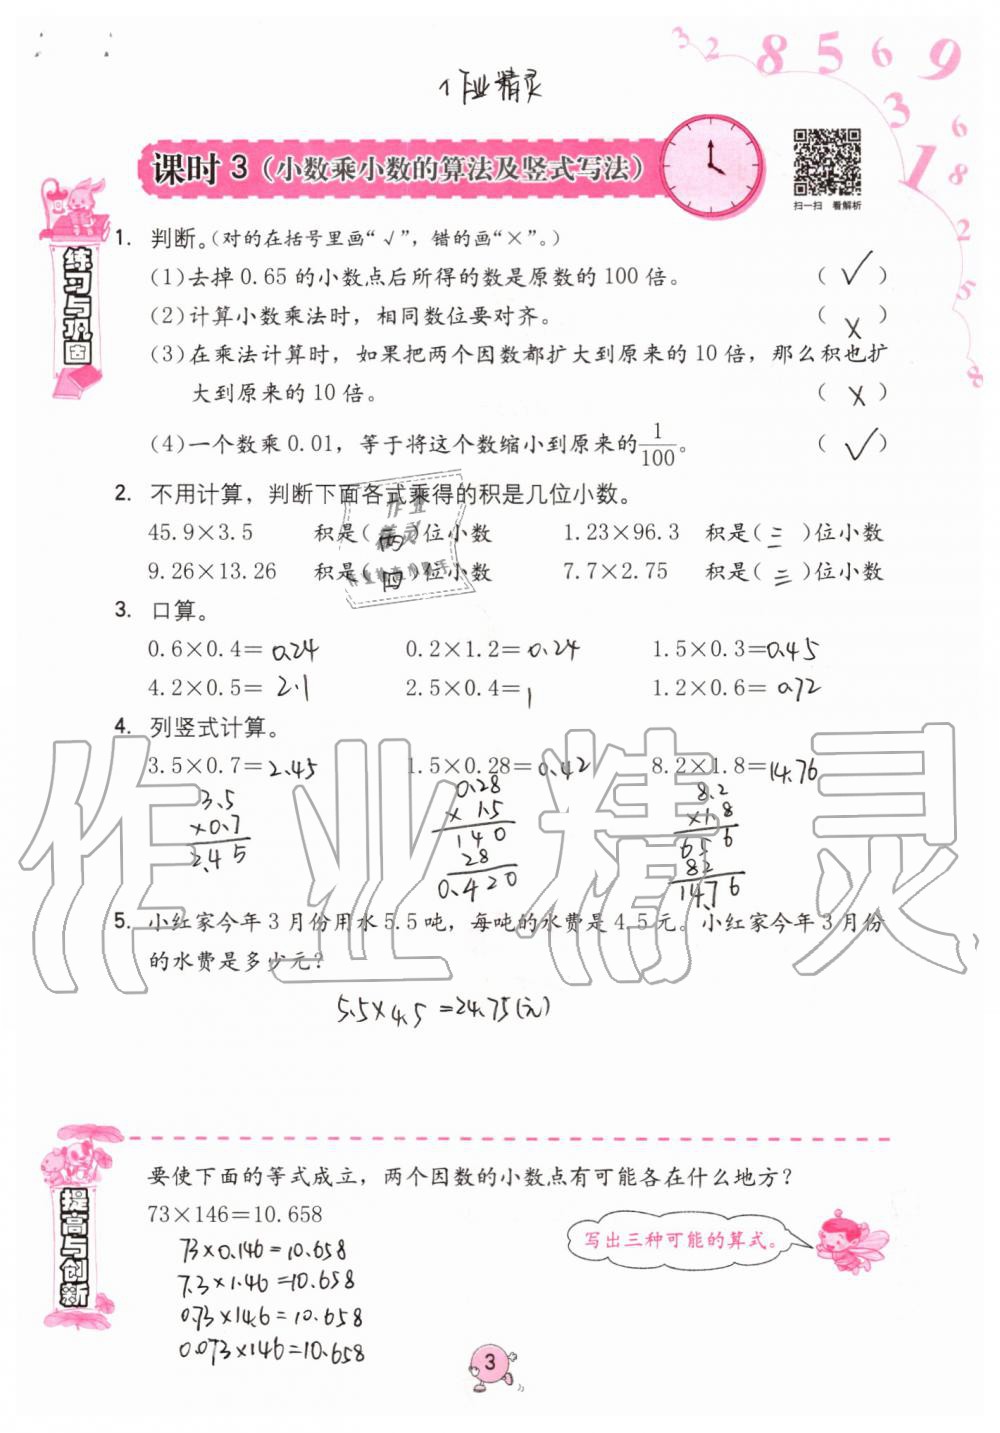 3 2 8 5 6 9
3
6
1
8
2
5
8
作业精灵
课时 3（小数乘小数的算法及竖式写法）
扫一扫 看解析
练习与巩固
1. 判断。(对的在括号里画“√”，错的画“×”。)
(1)去掉 0.65 的小数点后所得的数是原数的 100 倍。 ( √ )
(2)计算小数乘法时，相同数位要对齐。 ( × )
(3)在乘法计算时，如果把两个因数都扩大到原来的 10 倍，那么积也扩
大到原来的 10 倍。 ( × )
(4)一个数乘 0.01，等于将这个数缩小到原来的1/100。 ( √ )
2. 不用计算，判断下面各式乘得的积是几位小数。
45.9×3.5 积是( 两 )位小数 1.23×96.3 积是( 三 )位小数
9.26×13.26 积是( 四 )位小数 7.7×2.75 积是( 三 )位小数
作业
精灵
3. 口算。
0.6×0.4= 0.24 0.2×1.2= 0.24 1.5×0.3= 0.45
4.2×0.5= 2.1 2.5×0.4= 1 1.2×0.6= 0.72
4. 列竖式计算。
3.5×0.7= 2.45 1.5×0.28= 0.42 8.2×1.8= 14.76
3.5 0.28 8.2
×0.7 × 1.5 ×1.8
2.45 140 656
28 82
0.420 14.76
作业精灵
5. 小红家今年 3 月份用水 5.5 吨，每吨的水费是 4.5 元。小红家今年 3 月份
的水费是多少元？
5.5×4.5=24.75(元)
提高与创新
要使下面的等式成立，两个因数的小数点有可能各在什么地方？
73×146=10.658
写出三种可能的算式。
73×0.146=10.658
7.3×1.46=10.658
0.73×14.6=10.658
0.073×146=10.658
3